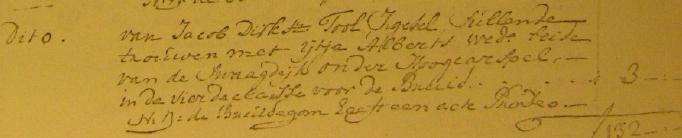 Dito. van Jacob Dirksz Tool Jgesel, willende
trouwen met ijtje Alberts wedᵉ beide
van de Zwaagdijk onder Hoogcarspel,
in de vierde classe voor de Bruid . . . . . 3 —:—
N. B: de Bruidegom heeft een acte Prodeo.—
152 —:—